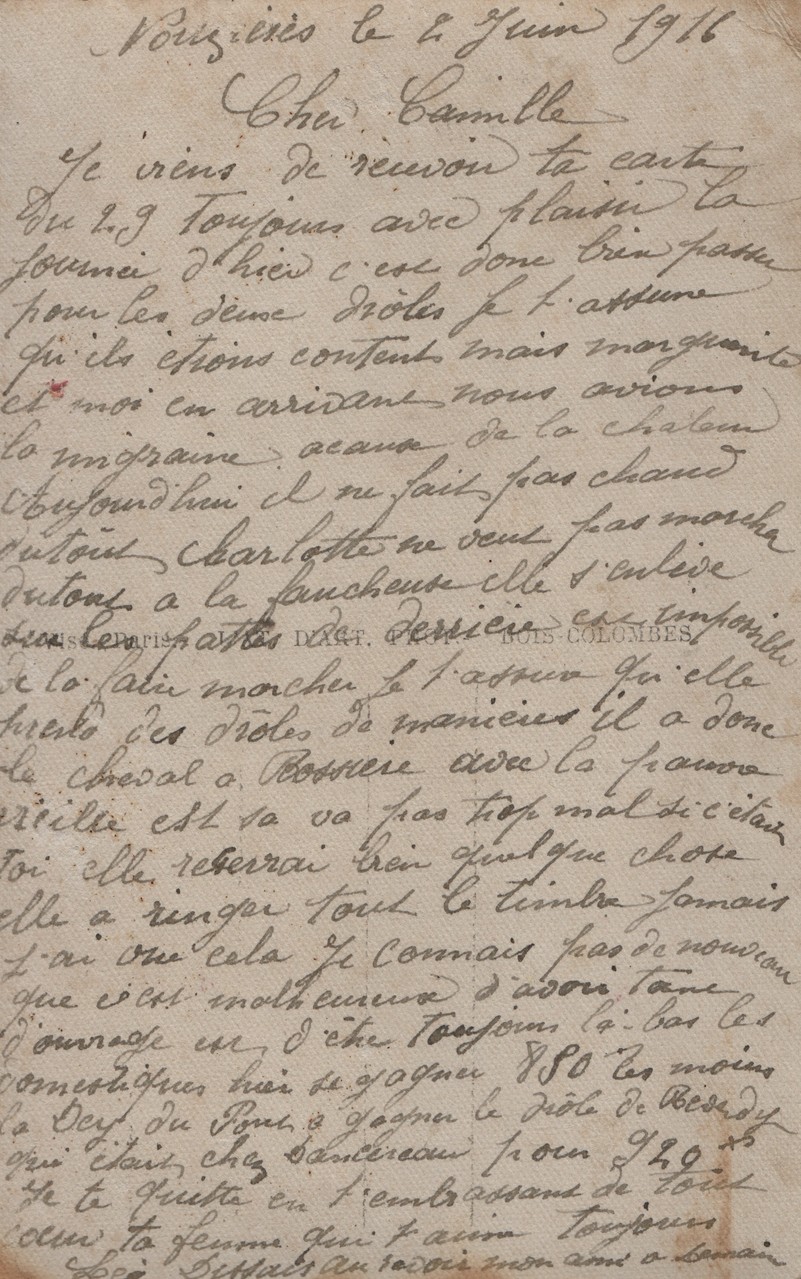 le 2 Juin 1916
Cher Camille
Je viens de recevoir ta carte
du 29 toujours avec plaisir la
journei d'hier c'est donc bien passer
pour les deux drôles Je t'assure
qu'ils étions contents mais marguerite
et moi en arrivant nous avions
la migraine acause de la chaleur
Aujourd'hui il ne fait pas chaud
dutout Charlotte ne veut pas marcher
dutout a la faucheuse elle s'enlève
sur les pattes de derrière est impossible
Paris D'ART. BOIS-COLOMBES
de la faire marcher Je t'assure qu'elle
prend des drôles de manieres il a donc
le cheval a Rossiere avec la pauvre
vieille est sa va pas trop mal si c'était
toi elle bien quelque chose
elle a ringer tout le timbre Jamais
j'ai vue cela Je connais pas de nouveau
que c'est malheureux d'avoir tant
d'ouvrage est d'être toujours là-bas les
domestiques hier se gagner les moins
la du Pont a gagner le drôle de
qui était chez pour 920
Je te quitte en t'embrassant de tout
coeur ta femme qui t'aime toujours
au revoir mon ami a demain